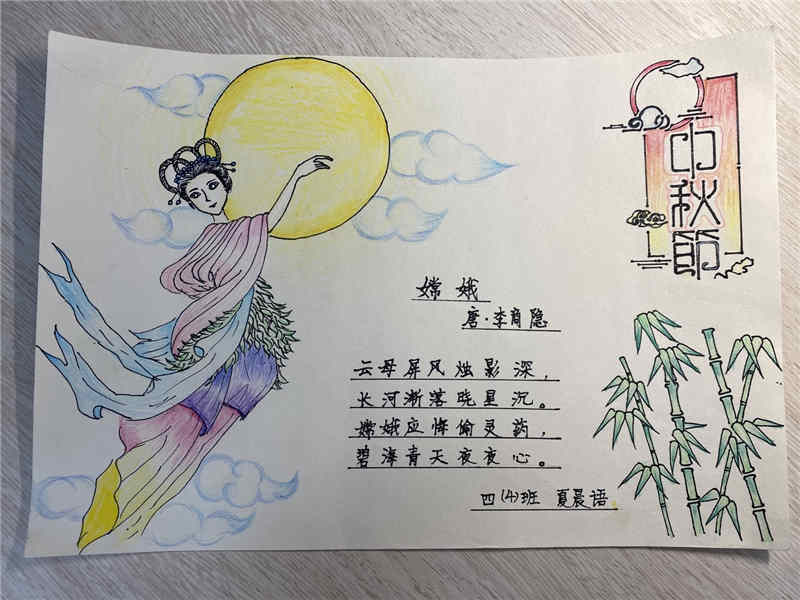 中秋節
嫦娥
唐·李商隐
云母屏风烛影深，
长河渐落晓星沉。
嫦娥应悔偷灵药，
碧海青天夜夜心。
四(4)班 夏晨语